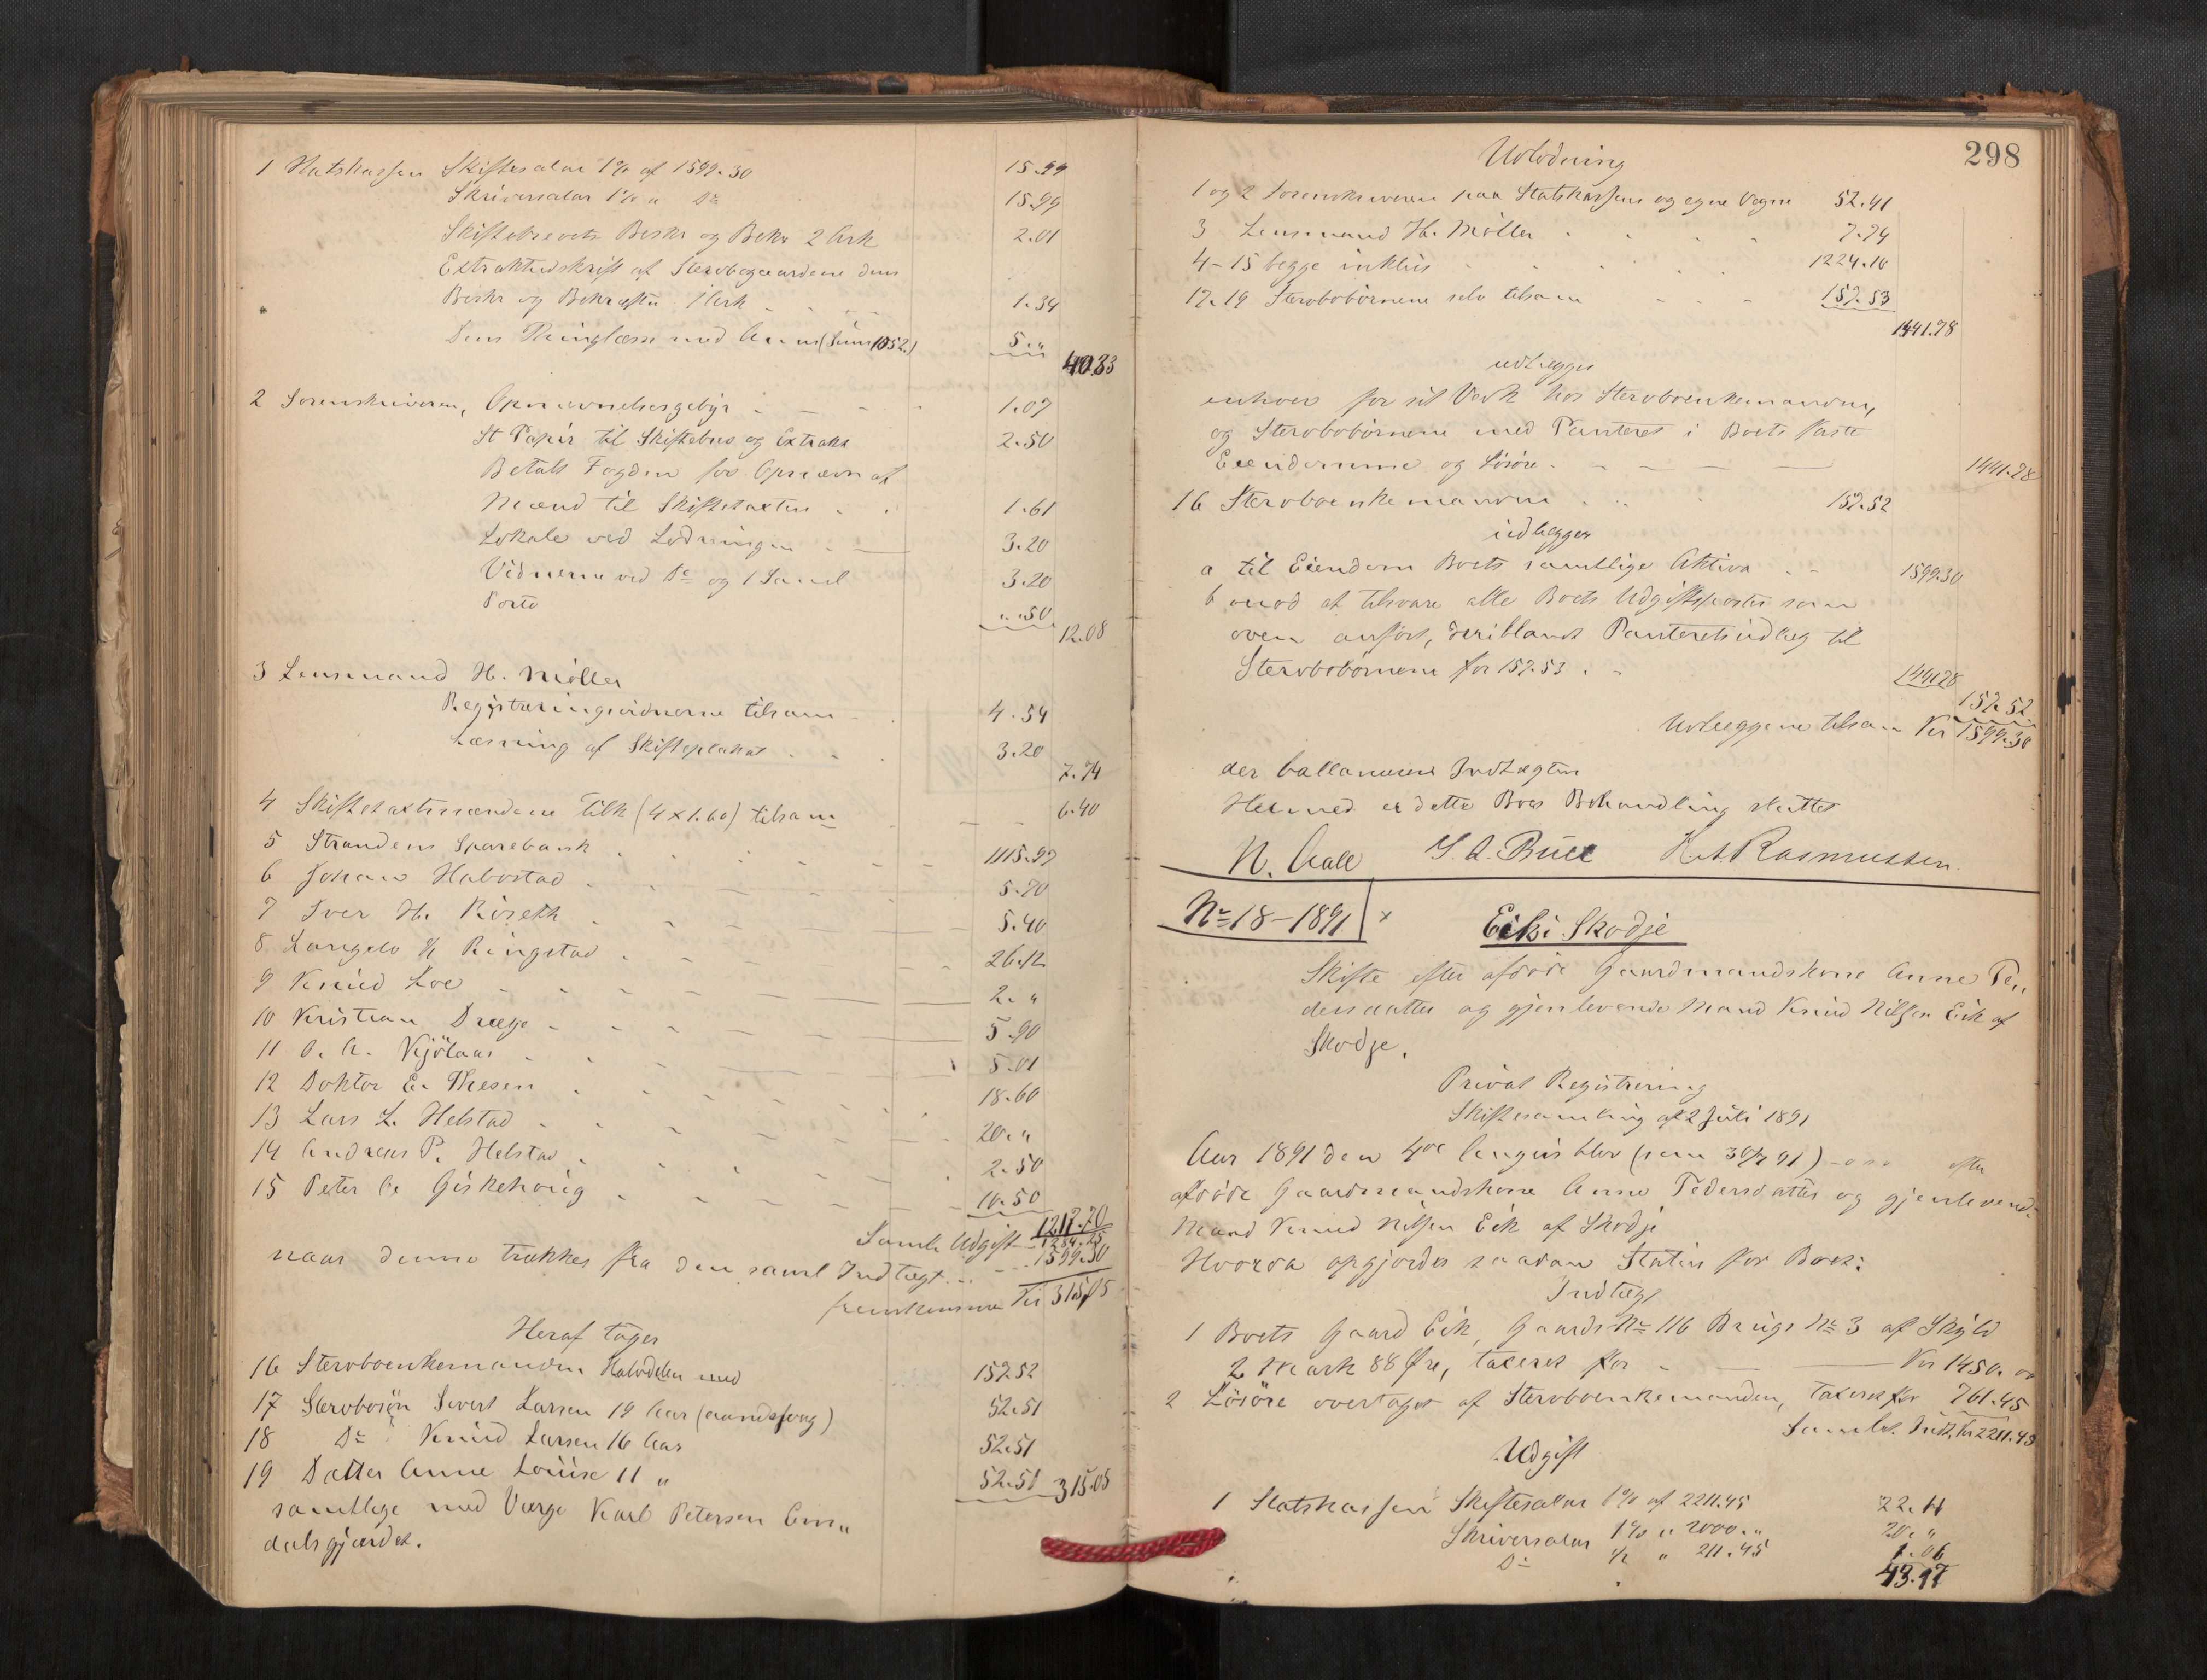 1 Statskassen Skiftesalær 1% af 1599.30 15.99
Skriversalær 1% " Do 15.99
Skiftebrevets Beskr og Bekr 2 Ark 2.01
Extraktudskrift af Stervbogaardene dens
Beskr og Bekræfte 1 Ark 1.34
Dens Thinglæsn med Ann 5."
40.33
2 Sorenskriveren, Opnævnelsesgebyr 1.07
St Papir til Skiftebrev og Extrakt 2.50
Betalt Fogden for Opnævn af
Mænd til Skiftetaxten 1.61
Lokale ved Lodningen 3.20
Vidnerne ved Do og 1 Saml 3.20
Porto ".50
12.08
3 Lensmand H. Møller
Registreringsvidnerne tilsam 4.54
Læsning af Skifteplakat 3.20
7.74
4 Skiftetaxtmændene Tilk (4 x 1.60) tilsam 6.40
5 Strandens Sparebank 1115.97
6 Johan Habostad 5.70
7 Iver H. Riseth 5.40
8 Langlo & Ringstad 26.12
9 Knud Loe 2. "
10 Kristian Dræge 5.90
11 O. A. Kjølaas 5.01
12 Doktor E. Thesen 18.60
13 Lars L. Helstad 20. "
14 Andreas P. Helstad 2.50
15 Peter O. Giskehoug 10.50
1217.70
Saml. Udgift 1284.25
naar denne trækkes fra den saml Indtægt 1599.30
fremkommer Kr 315.05
Heraf tages
16 Stervboenkemanden Halvdelen med 157.52
17 Stervbosøn Sivert Larsen 19 Aar (aandssvag) 52.51
18 Do Knud Larsen 16 Aar 52.51
19 Datter Anne Louise 11 " 52.51 315.05
samtlige med Værge Karl Petersen Em"
dalsgjærdet.
298
Udlodning
1 og 2 Sorenskriveren paa Statskassens og egne Vegne 52.41
3 Lensmand H. Møller 7.74
4-15 begge inklus 1224.10
17-19 Stervbobørnene selv tilsam 157.53
1441.78
udlægges
enhver for sit Vedk hos Stervboenkemanden,
og Stervbobørnene med Panteret i Boets faste
Eiendomme og Løsøre. 1441.78
16 Stervboenkemanden 157.52
udlægges
a til Eiendom Boets samtlige Aktiva 1599.30
b mod at tilsvare alle Boets Udgiftsposter som
oven anført, deriblandt Panteretsudlæg til
Stervbobørnene for 157.53 1441.78
157.52
Udlæggene tilsam Kr 1599.30
der ballancerer Indtægten
Hermed er dette Boes Behandling sluttet
N. Aall S. A. Buee K. A. Rasmussen
No 18-1891 x Eik i Skodje
Skifte efter afdøde Gaardmandskone Anne Pe"
dersdatter og gjenlevende Mand Knud Nilsen Eik af
Skodje.
Privat Registrering
Skiftesamling af 2 Juli 1891
Aar 1891 den 4de August blev efter
afdøde Gaardmandskone Anne Pedersdatter og gjenlevende
Mand Knud Nilsen Eik af Skodje
Hvorda opgjordes saadan Status for Boet:
Indtægt
1 Boets Gaard Eik, Gaards No 116 Brugs No 3 af Skyld
2 Mark 88 Øre, taxeret for Kr 1450.00
2 Løsøre overtaget af Stervboenkemanden, taxeret for 761.45
Samlet Indt. Kr 2211.45
Udgift
1 Statskassen Skiftesalær 1% af 2211.45 22.11
Skriversalær 1% " 2000." 20. "
Do ½ " 211.45 1.06
43.17